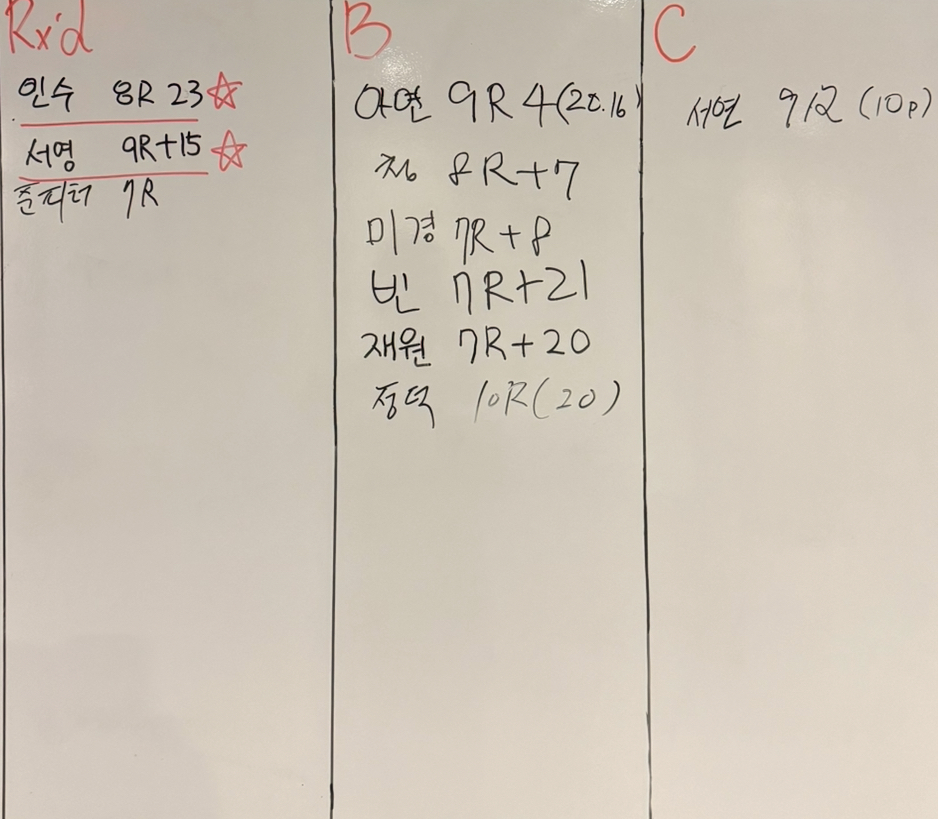 Rx'd
인수 8R 23
서영 9R+15
준피터 7R
B
아연 9R 4(20.16)
칭 8R+7
미경 7R+8
빈 7R+21
재원 7R+20
정덕 10R(20)
C
서연 9R (10p)